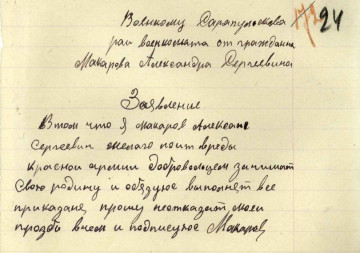 24
Военкому Сарапульскова
рай военкомата от гражданина
Макарова Александра Сергеевича
Заявление
В том что я Макаров Алексан
Сергеевич желаю поит вреды
красной армии добровольцем занимат
свою родину и обязуюс выполнят все
приказаня, прошу неотказат моей
прозби в чем и подписуюс Макаров